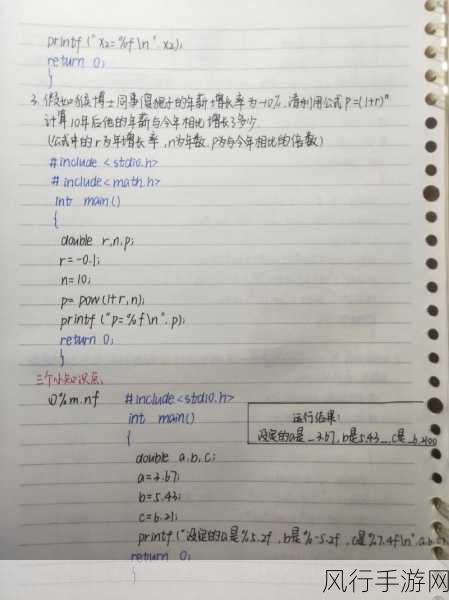 printf ("x2=%f\n". x2);
return 0;
}
3. 假如狼博士同事屋狮子的年薪增长率为-10%,请利用公式 P=(1+r)ⁿ
计算10年后他的年薪与今年相比增长了多少.
(公式中的r为年增长率,n为年数,P为与今年相比的倍数)
#include <stdio.h>
#include <math.h>
int main()
{
double r,n,p;
r=-0.1;
n=10;
p=pow(1+r,n);
printf ("p=%f\n". p);
return 0;
}
三个小知识点:
①%m.nf
#include<stdio.h>
int main()
{
double a,b,c;
a=3.67;
b=5.43;
c=6.21;
printf ("设定的a是%5.2f,b是%-5.2f,c是%7.4f\n".a,b,c);
return 0;
}
运行结果:
设定的a是_3.67,b是5.43_,c是_6.2100
风行手游网